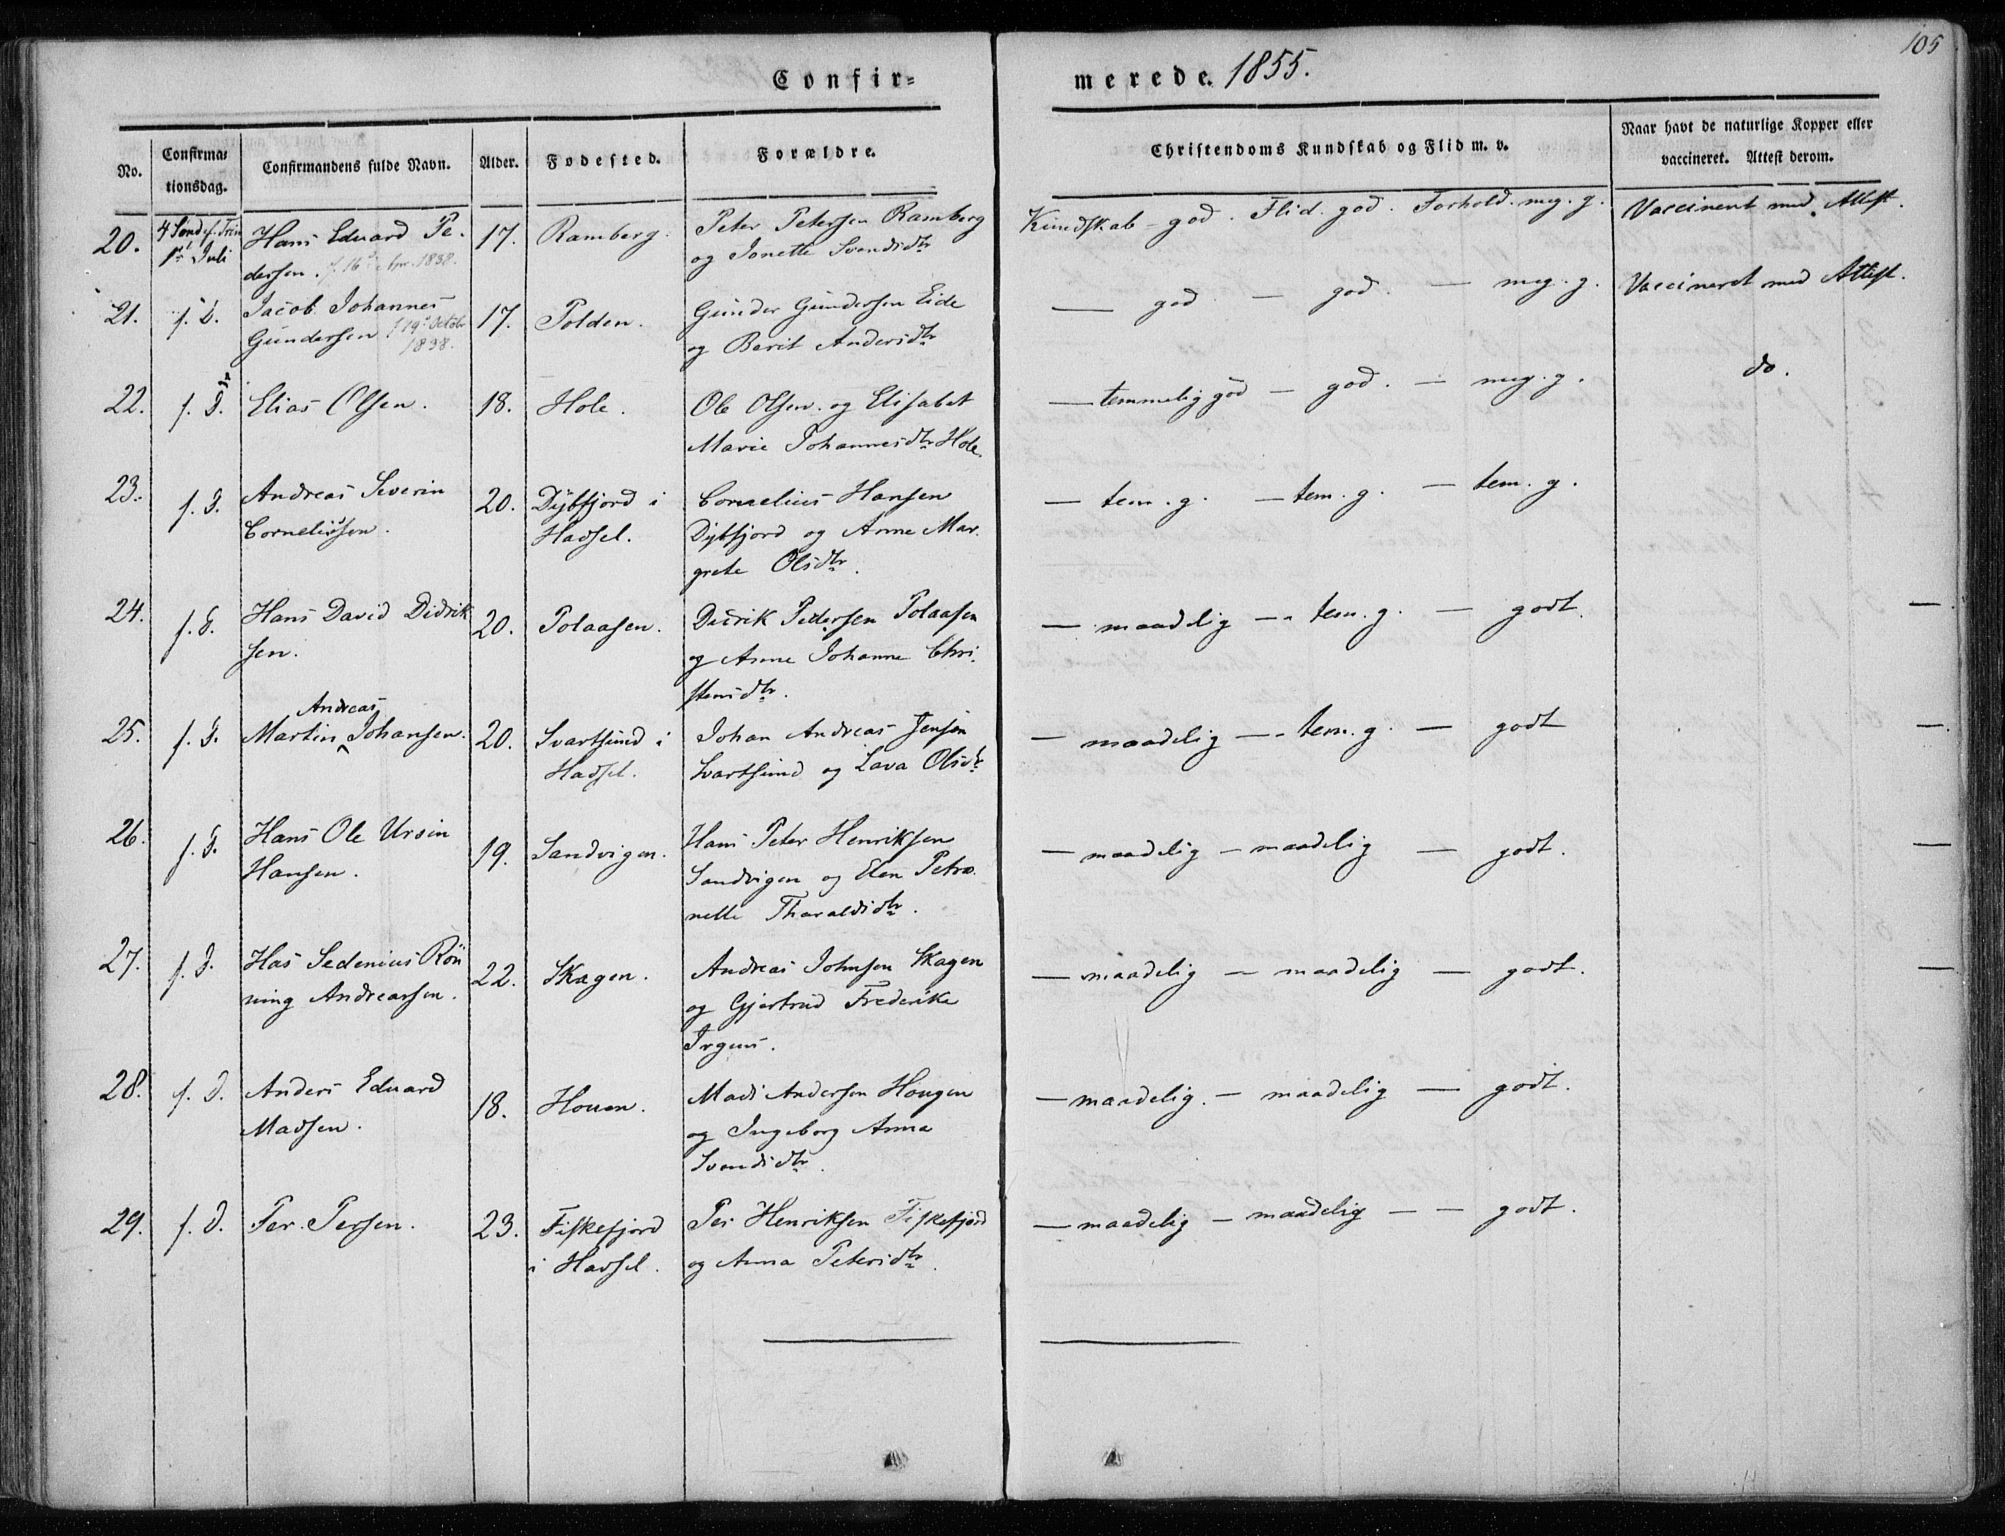 105
Confir= merede. 1855.
No. Confirma= tionsdag. Confirmandens fulde Navn. Alder. Fødested. Forældre. Christendoms Kundskab og Flid m. v. Naar havt de naturlige Kopper eller vaccineret. Attest derom.
20. 4 Sond. ef. Trin Hans Eduard Pe- 17. Ramberg. Peter Petersen Ramberg Kundskab - god. Flid. god. Forhold. meg. g. Vaccineret med Attest.
1ste Juli dersen. f. 16de Apr. 1838. og Jonette Svendsdtr
21. f. D. Jacob Johannes 17. Polden. Gunder Gundersen Eide — god — god. — meg. g. Vaccineret med Attest.
Gundersen f 19de Octobr og Berit Andersdtr
1838.
22. f. D. Elias Olsen. 18. Hole. Ole Olsen og Elisabet — temmelig god — god. — meg. g. do.
Marie Johannesdtr Hole.
23. f. D. Andreas Severin 20. Dybfjord i Cornelius Hansen — tem. g. — tem. g. — tem. g.
Corneliussen. Hadsel. Dybfjord og Anne Mar-
grete Olsdtr.
24. f. D. Hans David Didrik 20. Polaasen. Didrik Pedersen Polaasen — maadelig — tem. g. — godt.
sen. og Anne Johanne Chri-
stensdtr.
Andreas
25. f. D. Martin Johansen. 20. Svartsund i Johan Andreas Jensen — maadelig — tem. g. — godt —
Hadsel. Svartsund og Lava Olsdtr
26. f. D. Hans Ole Ursin 19. Sandvigen. Hans Peter Henriksen — maadelig — maadelig — godt. —
Hansen. Sandvigen og Elen Petro-
nelle Tharaldsdtr.
27. f. D. Has Sedenius Rön 22. Skagen. Andreas Johnsen Skagen — maadelig — maadelig — godt. —
ning Andreassen. og Gjertrud Frederike
Irgens.
28. f. D. Anders Eduard 18. Houen. Mads Andersen Hougen — maadelig. — maadelig — godt.
Madsen. og Ingeborg Anna
Svendsdtr.
29. f. D. Per Persen. 23. Fiskefjord Per Henriksen Fiskefjord — maadelig — maadelig — — godt.
i Hadsel. og Anna Petersdtr.